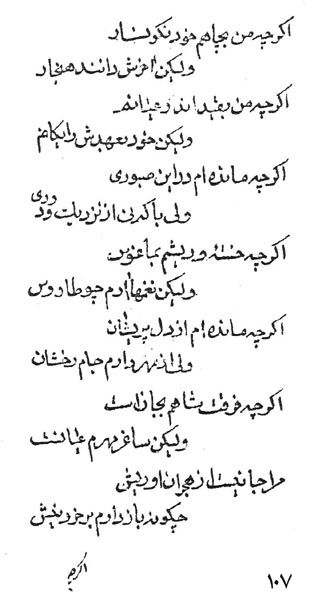 اگرچه من بچاهم خود نکونسار
ولیکن اخرش رانند هنجار
اگرچه من بقید اندر
ولیکن خود بعهدش
اگرچه مانده ام در این صبوری
ولی باکدنی از
اگرچه خسته و ریشم
ولیکن نغمها ارم چو طاووس
اگرچه مانده ام از دل پریشان
ولی از مهر دارم جام رخشان
اگرچه فرقت شاهم بجانست
ولیکن ساغر مهرم عیانست
مرا جانیست از هجران او ریش
چکونه باز دارم برخرد نیش
اگرچه
۱۰۷